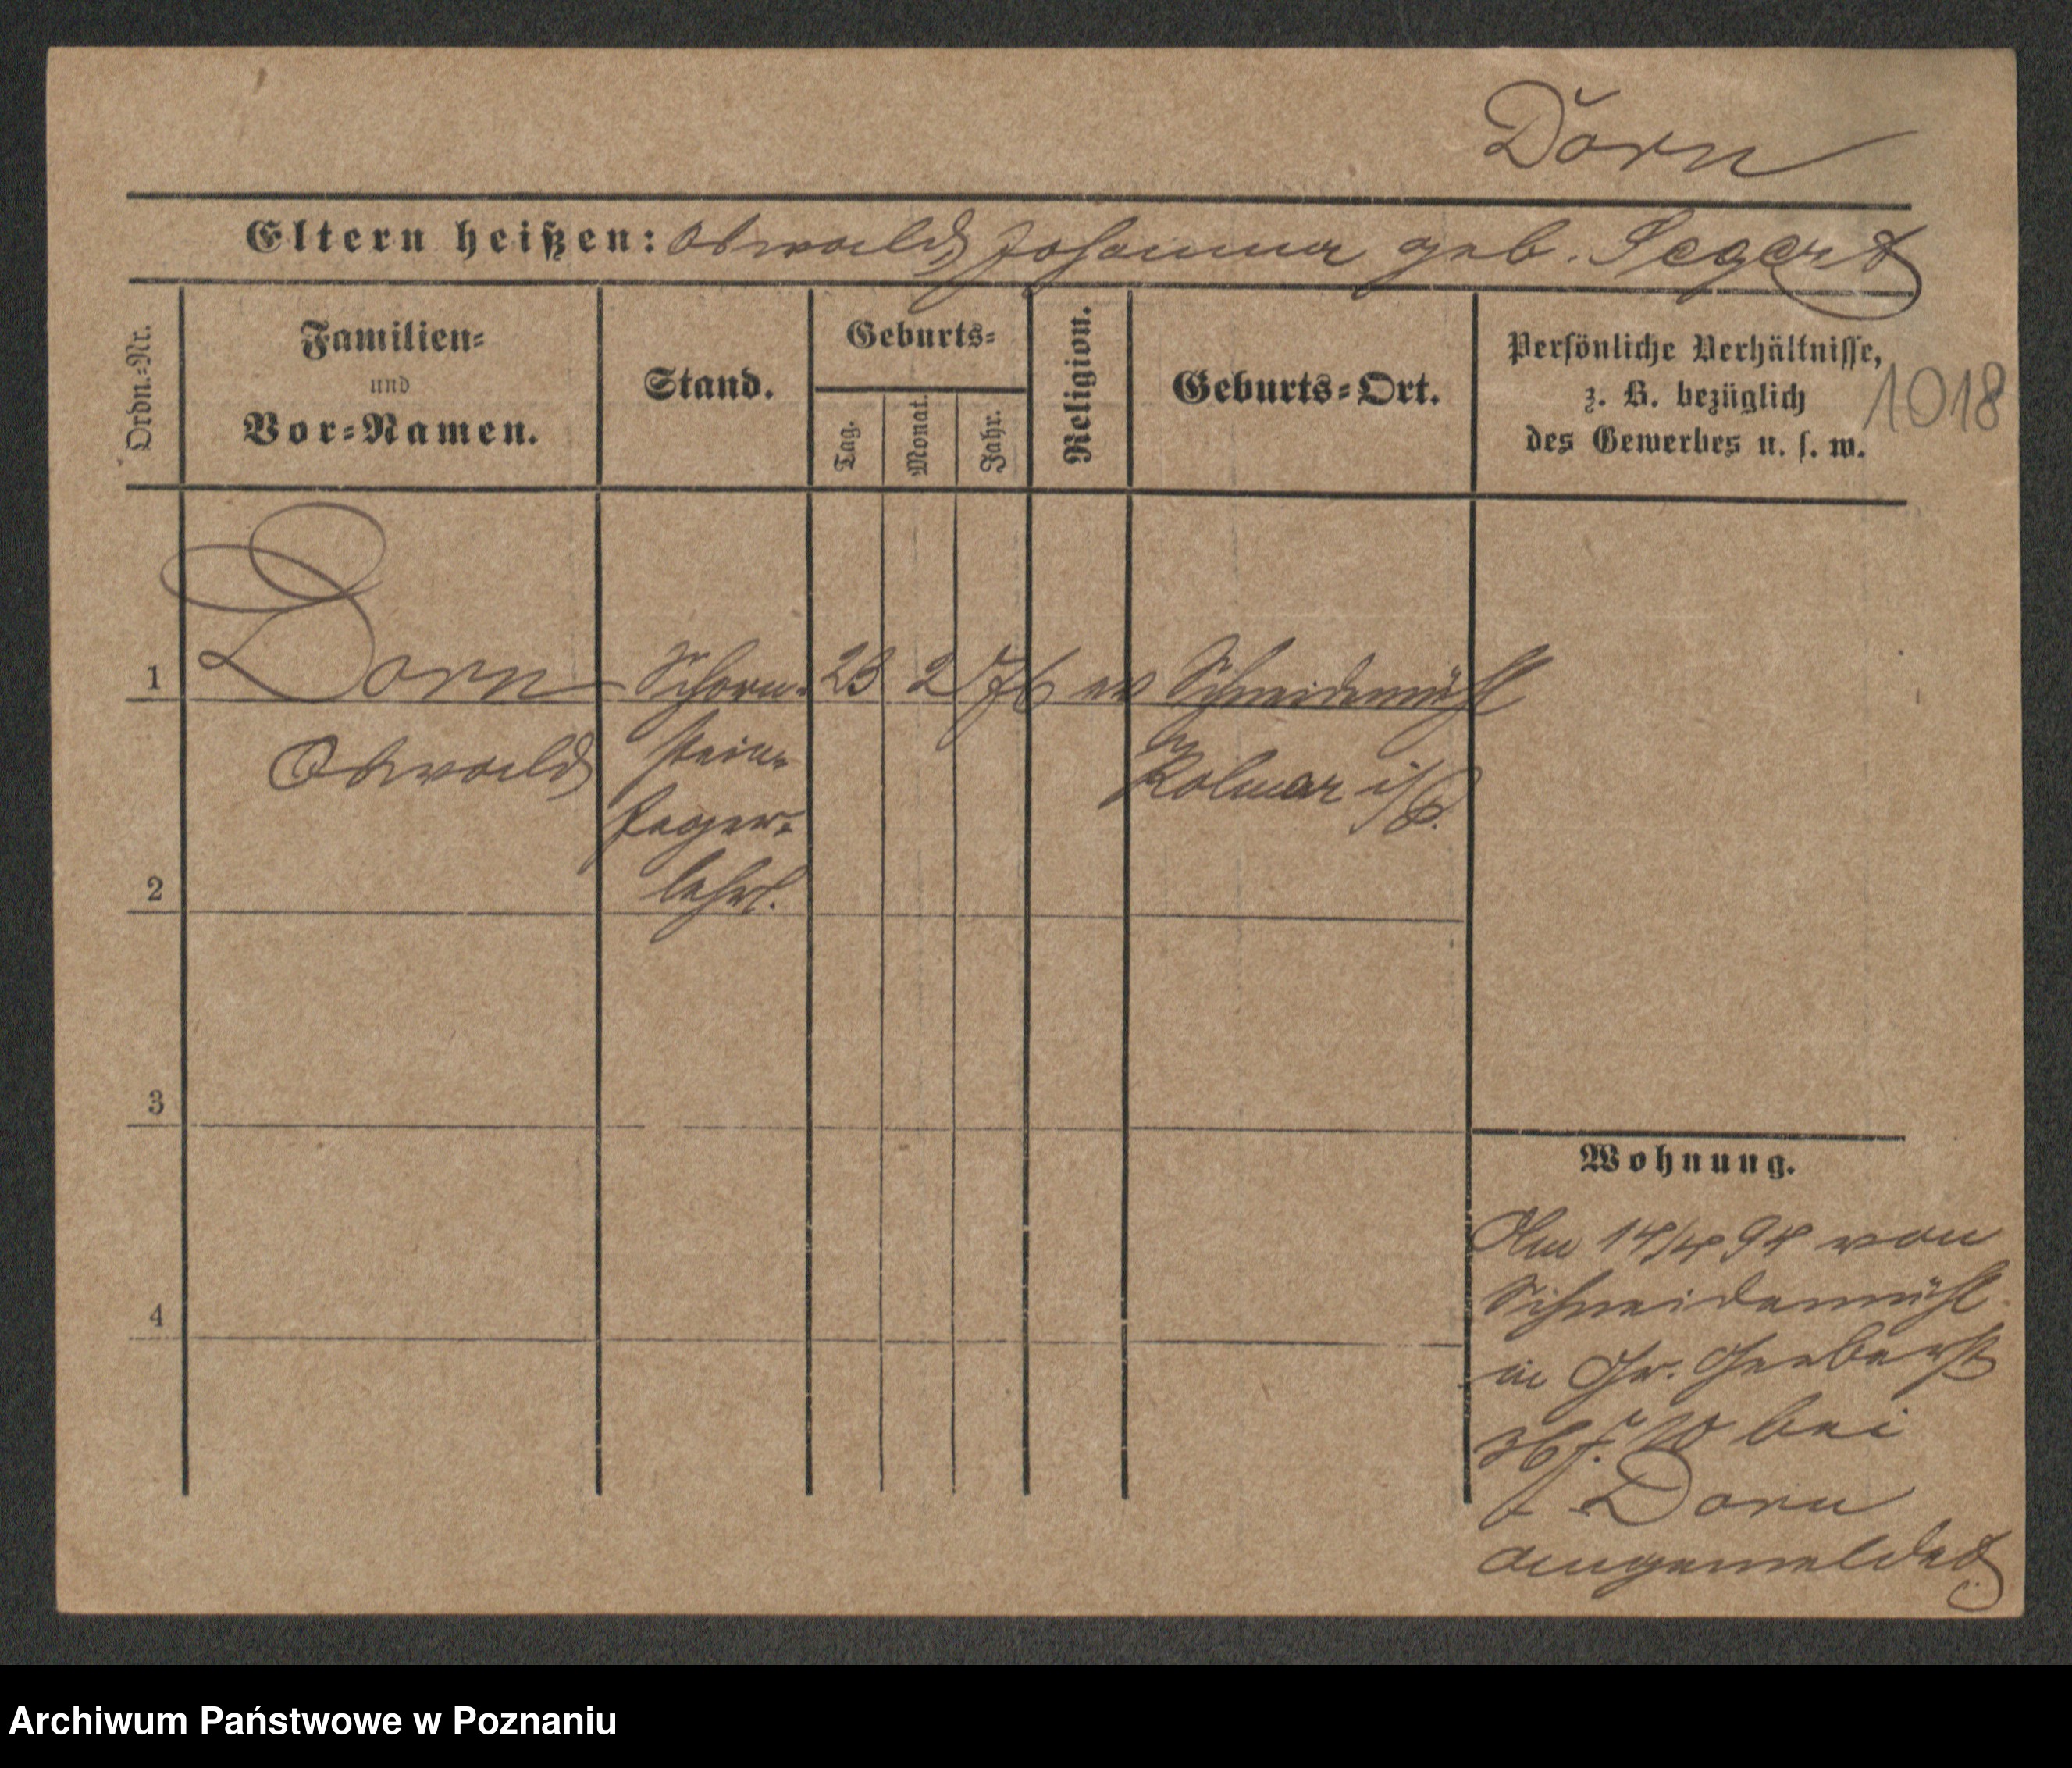 Dorn
Eltern heißen: Oswald, Johanna geb. Segert
Ordn.-Nr.
Familien-
und
Vor-Namen.
Stand.
Geburts-
Tag.
Monat.
Jahr.
Religion.
Geburts-Ort.
Persönliche Verhältnisse,
z. B. bezüglich
des Gewerbes u. s. w.
1018
1 Dorn Schorn- 23 2 76 ev Schneidemühl
Oswald stein- Kolmar i/P.
feger-
2 lehrl.
3
4
Wohnung.
Am 14/4 94 von
Schneidemühl
in Gr. Gerberst
36 bei
Dorn
angemeldet
Archiwum Państwowe w Poznaniu